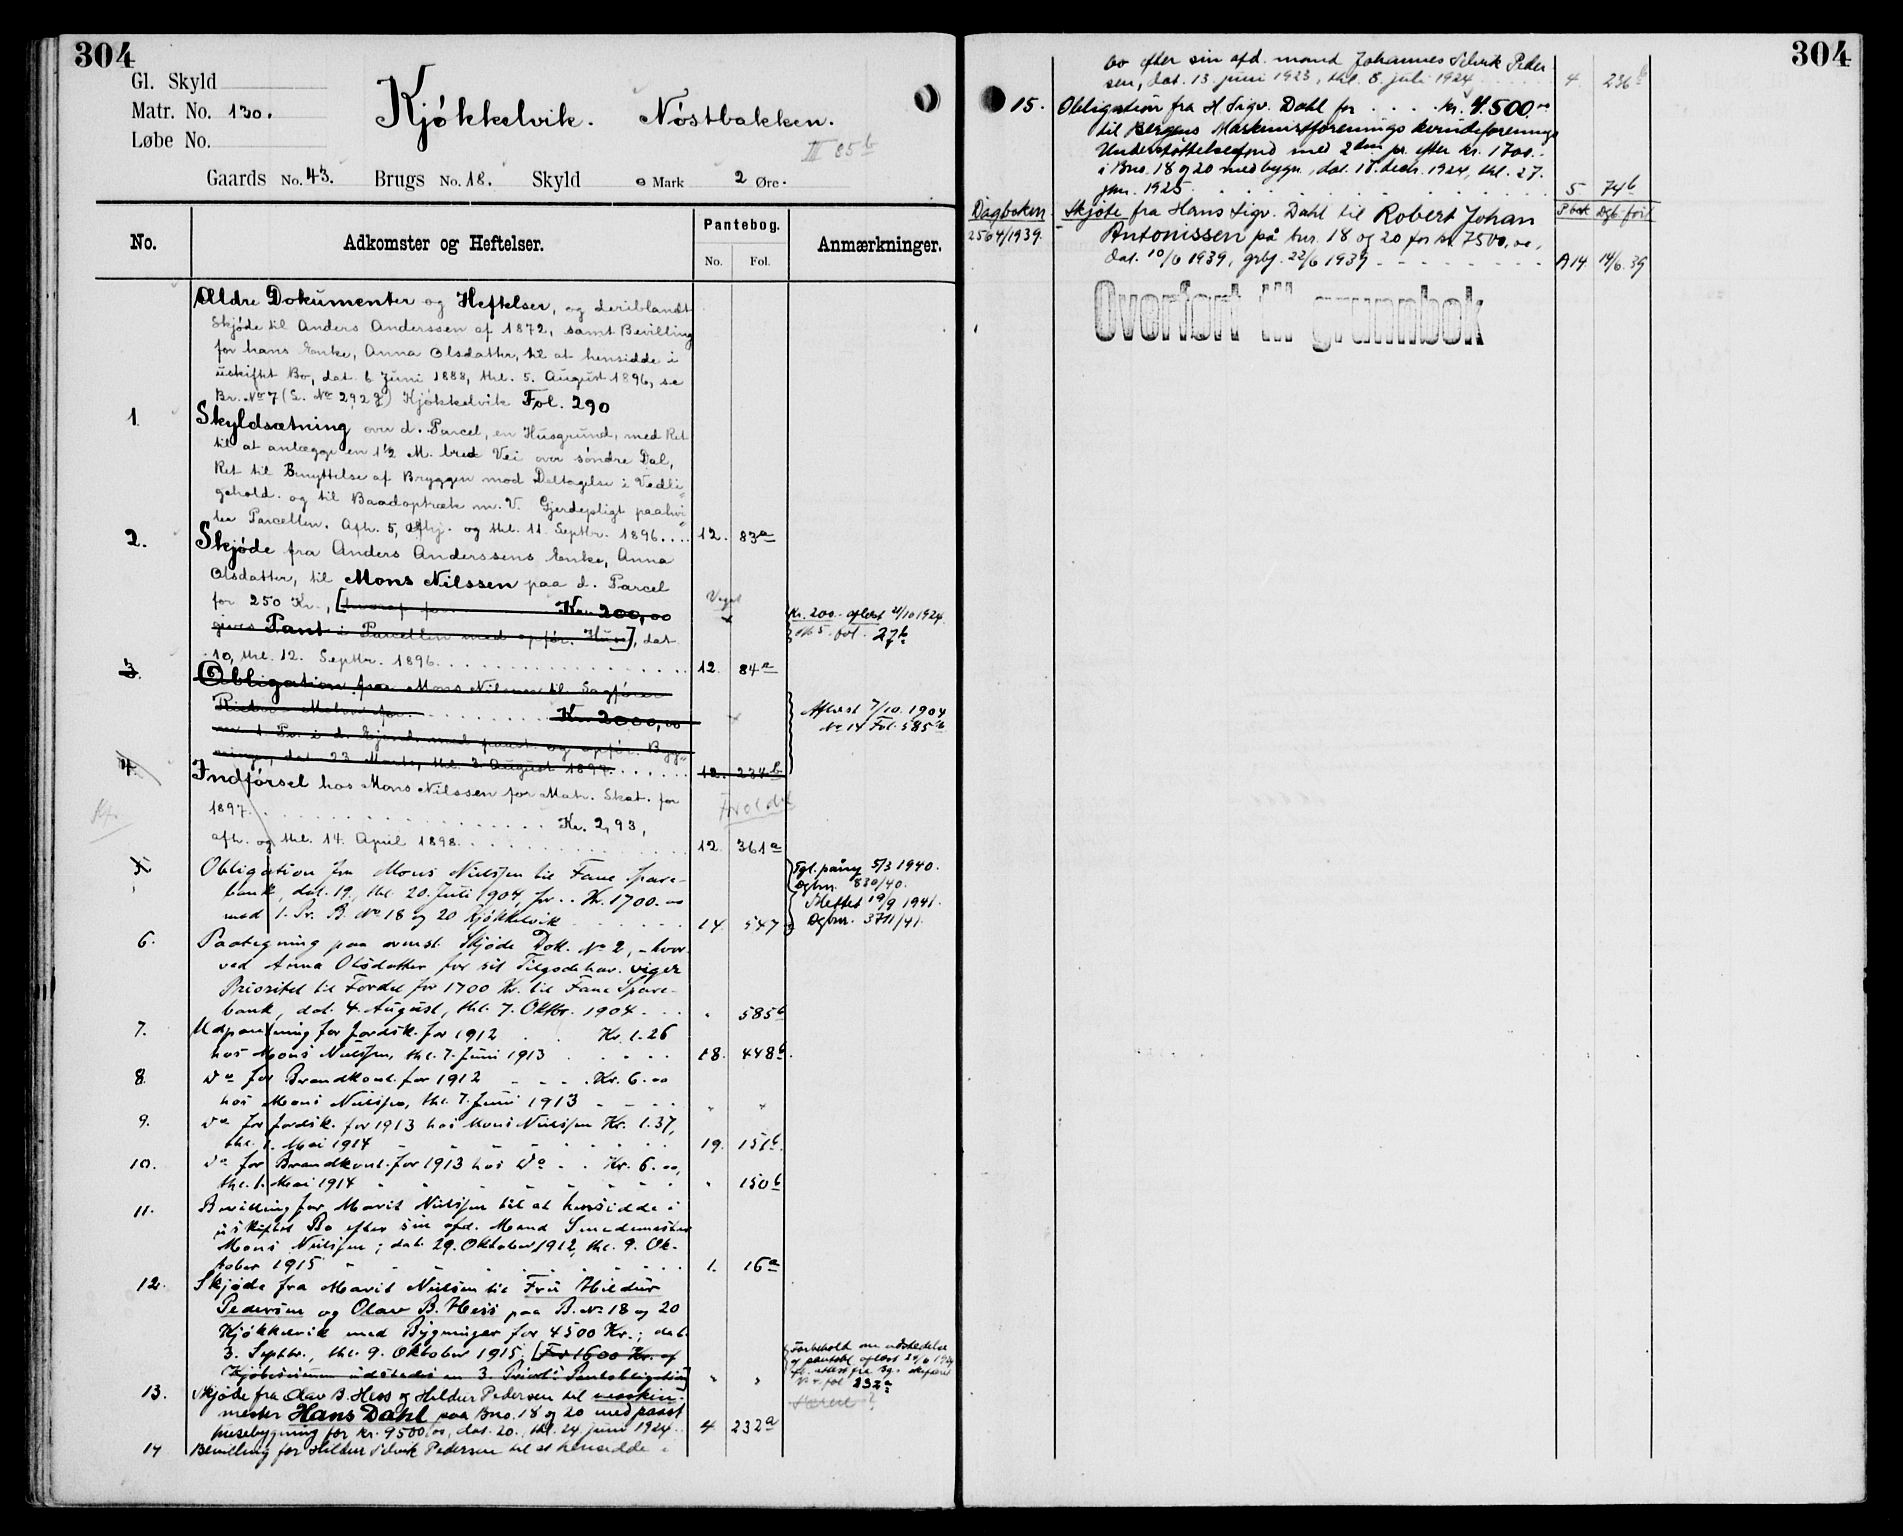 304
Gl. Skyld
Matr. No. 130.
Løbe No.
Kjøkkelvik. Nøstbakken.
III 85b
Gaards No. 43. Brugs No. 18. Skyld 0 Mark 2 Øre.
No.
Adkomster og Heftelser.
Pantebog.
No. Fol.
Anmærkninger.
Ældre Dokumenter og Heftelser, og deriblandt
Skjøde til Anders Anderssen af 1872, samt Bevilling
for hans Enke, Anna Olsdatter, til at hensidde i
uskiftet Bo, dat. 6 Juni 1888, thl. 5. August 1896, se
Br. No 7 (L. No 292 g) Kjøkkelvik Fol. 290
1 Skyldsætning over d. Parcel, en Husgrund, med Ret
til at anlægge en 1½ M. bred Vei over søndre Dal,
Ret til Benyttelse af Bryggen mod Deltagelse i Vedli-
gehold. og til Baadoptræk m. V. Gjerdepligt paahvi-
ler Parcellen. Afh. 5, afhj. og thl. 11. Septbr. 1896.... 12. 83a
2. Skjøde fra Anders Anderssens Enke, Anna
Olsdatter, til Mons Nilssen paa d. Parcel
for 250 Kr., [hvoraf for Kr. 200,00
gives Pant i Parcellen med opfør. Huse], dat.
10, thl. 12. Septbr. 1896. 12. 84a
Viget
Kr. 200.- aflæst 21/10 1924.
Nb 5. fol. 27b
3. Obligation fra Mons Nilssen til Sagfører
Kr. 2000,00
m. 1. Pr. i d. Ejend. med paast. og opfør. Byg-
ning, dat. 23 Marts, thl. 3. August 1897. 12. 234b
Aflæst 7/10. 1904
No 14 Fol. 585b
4. Indførsel hos Mons Nilssen for Matr. Skat. for
1897. Kr. 2,93,
afh. og thl. 14. April 1898. 12. 361a
5. Obligation fra Mons Nielssen til Fane Spare-
bank, dat. 19, thl. 20. Juli 1904, for .. Kr. 1700.00
med 1. Pr. B. No 18 og 20 Kjøkkelvik 14. 547
Tgl. påny 5/3 1940.
Dgbnr. 830/40.
Slettet 19/9 1941.
Dgbnr. 3711/41.
6. Paategning paa ovenst. Skjøde Dok. No 2, - hvor-
ved Anna Olsdatter for sit Tilgodehav. viger
Prioritet til Fordel for 1700 Kr. til Fane Spare-
bank, dat. 4. August, thl. 7. Oktbr. 1904. 585b
7. Udpantning for Jordsk. for 1912 Kr. 1.26
hos Mons Nielssen, thl. 7. Juni 1913 18. 448b.
8. Do for Brandkont. for 1912 Kr. 6.00
hos Mons Nielssen, thl. 7. Juni 1913
9. Do for Jordsk. for 1913 hos Mons Nielssen Kr. 1.37,
thl. 1. Mai 1914 19. 151b.
10. Do for Brandkont. for 1913 hos Do Kr. 6.00,
thl. 1. Mai 1914 150b
11. Bevilling for Marit Nielssen til at hensidde i
uskiftet Bo efter sin afd. Mand Smedemester
Mons Nielssen; dat. 29. Oktober 1912, thl. 9. Ok-
tober 1915 1. 16a
12. Skjøde fra Marit Nielsen til Fru Hildur
Pedersen og Olav B. Hess paa B. No 18 og 20
Kjøkkelvik med Bygninger for 4500 Kr.; dat.
3. Septbr., thl. 9. Oktober 1915. [For 1600 Kr. af
Kjøbesummen udstedes en 3. Priorit. Pantobligation]
Forbehold om udstedelse
og pantobl. aflæst 24/6 1924
No 4 fol 232a
13. Skjøde fra Olav B. Hess og Hildur Pedersen til maskin-
mester Hans Dahl paa Bno. 18 og 20 med paast.
husebygning for kr. 9500.00, dat. 20., thl. 24 juni 1924. 4 232a
14 Bevilling for Hildur Selvik Pedersen til at hensidde i
304
bo efter sin afd. mand Johannes Selvik Peder-
sen, dat. 13. juni 1923, thl. 8. juli 1924 4 236b
15. Obligation fra H. Sigv. Dahl for . . . . kr. 4.500,00
til Bergens Maskinistforenings kvindeforenings
Understøttelsesfond med 2den pr. efter kr. 1700.-
i Bno. 18 og 20 med bygn., dat. 18. decbr. 1924, thl. 27.
jan. 1925 5 74b
Dagboken
2564/1939.
P.bok Dgb. ført
Skjøte fra Hans Sigv. Dahl til Robert Johan
Antonissen på bnr. 18 og 20 for kr. 7500,00,
dat. 10/6 1939, grbf. 22/6 1939 A14 14/6.39
Overført til grunnbok